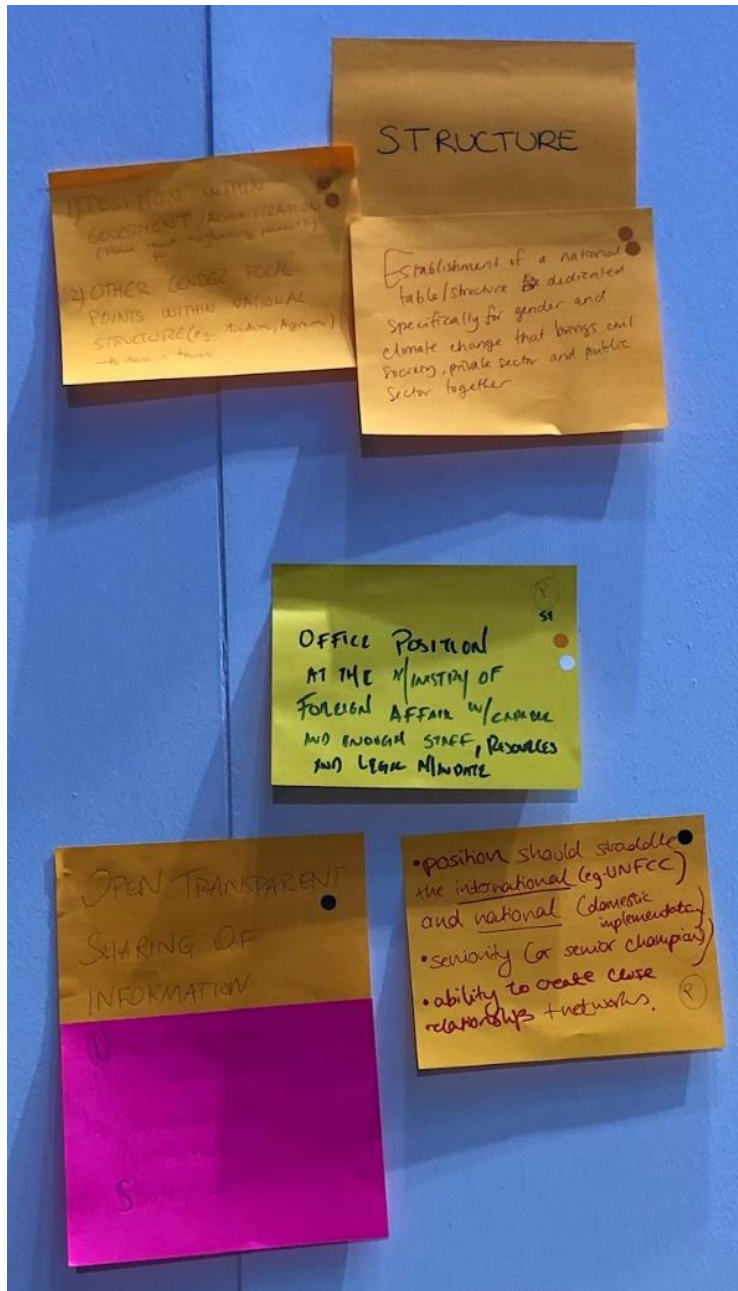 STRUCTURE
1) POSITION WITHIN
GOVERMENT/ADMINISTRATION
2) OTHER GENDER FOCAL
POINTS WITHIN NATIONAL
STRUCTURE (eg.
Establishment of a national
table/structure dedicated
specifically for gender and
climate change that brings civil
society, private sector and public
sector together
P
OFFICE POSITION
AT THE MINISTRY OF
FOREIGN AFFAIR W/
AND ENOUGH STAFF, RESOURCES
AND LEGAL MANDATE
OPEN TRANSPARENT
SHARING OF
INFORMATION
•position should straddle
the international (eg. UNFCC)
and national (domestic
implementation)
•seniority (or senior champion)
•ability to create close
relationships + networks.
P